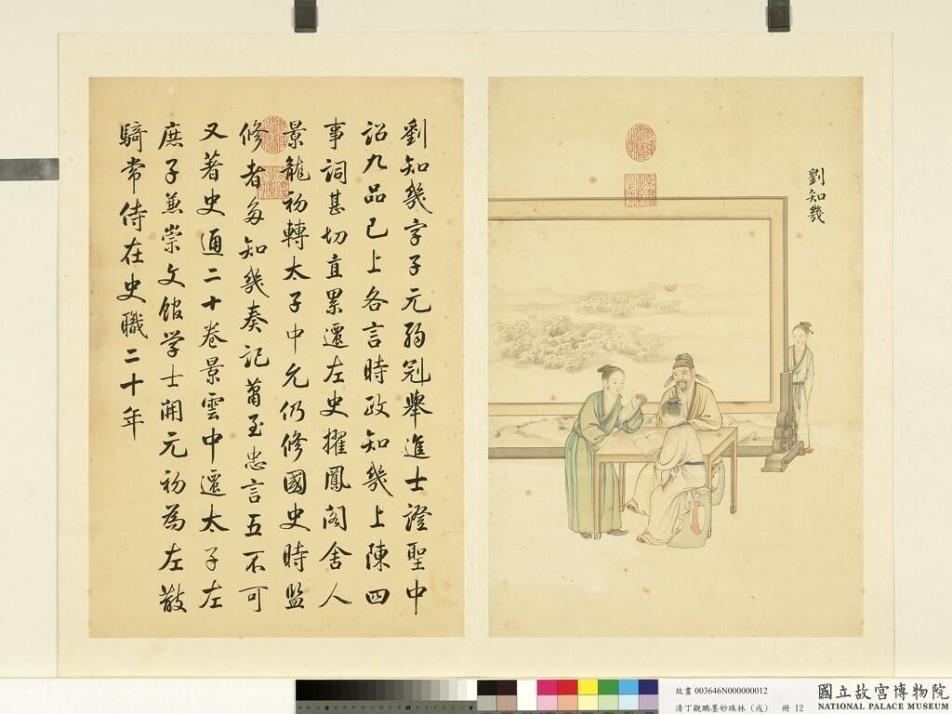 劉知幾
劉知幾字子元弱冠舉進士證聖中
詔九品已上各言時政知幾上陳四
事詞甚切直累遷左史擢鳳閣舍人
景龍初轉太子中允仍修國史時監
修者多知幾奏記蕭至忠言五不可
又著史通二十卷景雲中遷太子左
庶子兼崇文館学士開元初為左散
騎常侍在史職二十年
故畫 003646N000000012
清丁觀鵬墨妙珠林(戌) 冊 12
國立故宮博物院
NATIONAL PALACE MUSEUM